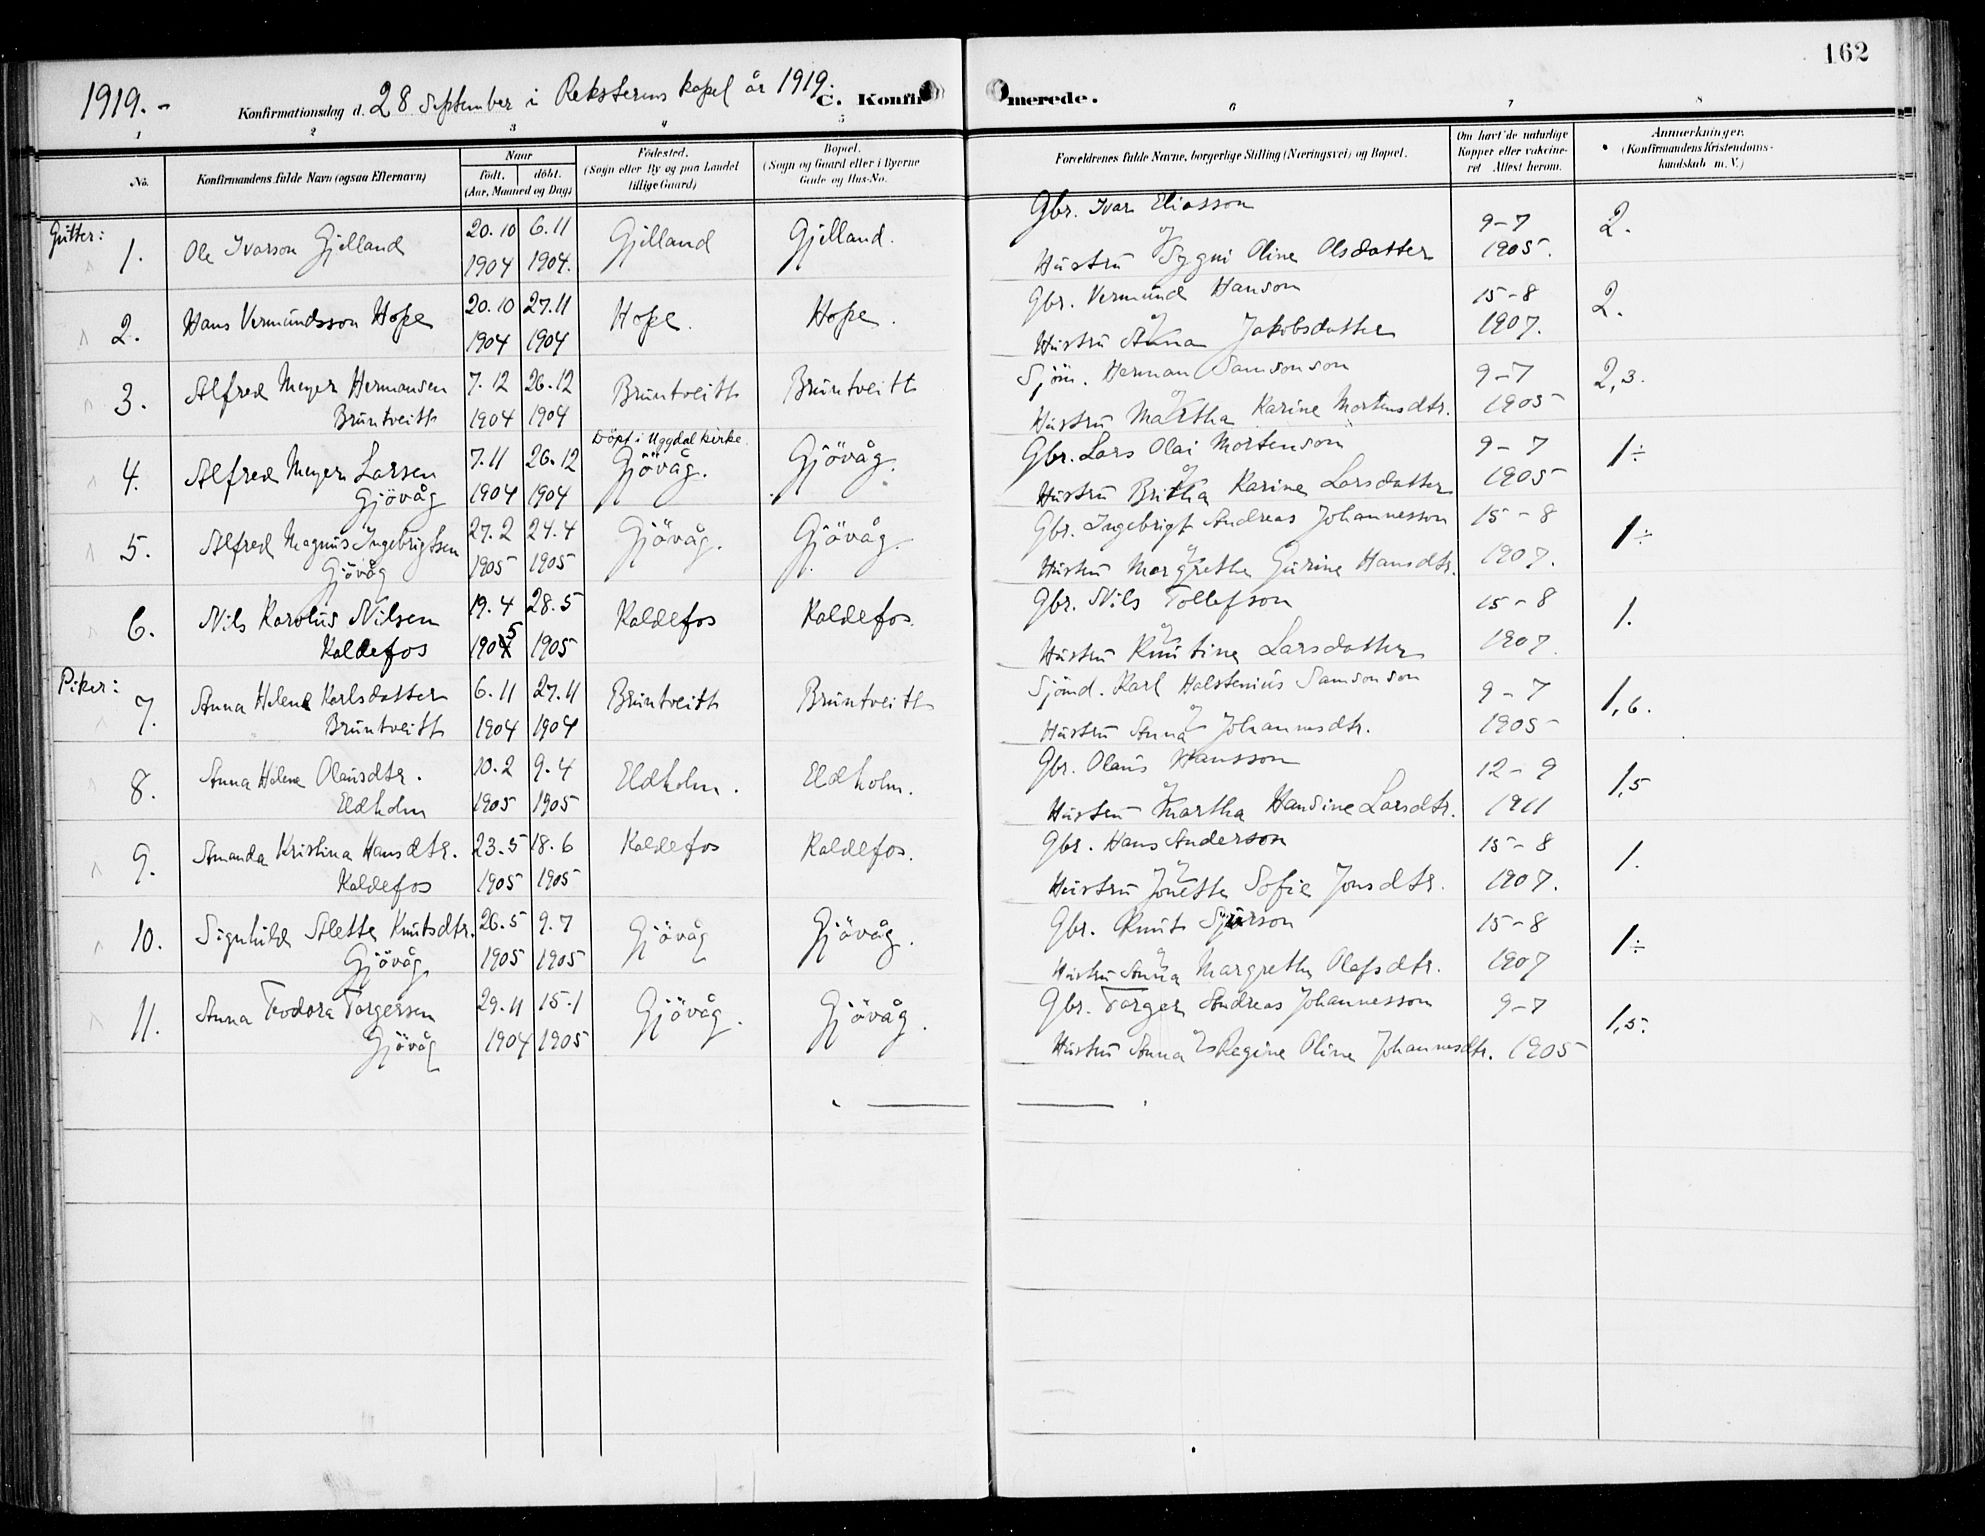 162
1919.- Konfirmationsdag d. 28 September i Reksterens kapel år 1919. C. Konfirmerede.
1 2 3 4 5 6 7 8
No. Konfirmandens fulde Navn (ogsaa Efternavn) Naar født. døbt. (Aar, Maaned og Dag) Fødested. (Sogn eller By og paa Landet tillige Gaard) Bopæl. (Sogn og Gaard eller i Byerne Gade og Hus-No. Forældrenes fulde Navne, borgerlige Stilling (Næringsvei) og Bopæl. Om havt de naturlige Kopper eller vakcineret Attest herom. Anmærkninger. (Konfirmandens Kristendomskundskab m. V.)
Gutter:
1. Ole Ivarson Gjelland 20.10 6.11 Gjelland Gjelland. Gbr. Ivar Eliasson 9-7 2.
1904 1904. Hustru Sygni Oline Olsdatter 1905.
2. Hans Vermundsson Hope 20.10 27.11 Hope. Hope. Gbr. Vermund Hanson 15-8 2.
1904 1904 Hustru Anna Jakobsdatter 1907.
3. Alfred Meyer Hermansen 7.12 26.12 Bruntveitt Bruntveitt Sjöm. Herman Samsonson 9-7 2,3.
Bruntveitt 1904 1904 Hustru Martha Karine Mortensdtr. 1905
Döpt i Uggdal kirke.
4. Alfred Meyer Larsen 7.11 26.12 Gjövåg. Gjövåg. Gbr. Lars Olai Mortenson 9-7 1÷
Gjövåg 1904 1904 Hustru Britha Karine Larsdatter 1905
5. Alfred Magnus Ingebrigtsen 27.2 24.4 Gjövåg. Gjövåg. Gbr. Ingebrigt Andreas Johannesson 15-8 1÷
Gjövåg 1905 1905 Hustru Margrethe Gurine Hansdtr. 1907.
6. Nils Karolus Nilsen 19.4 28.5 Kaldefos Kaldefos. Gbr. Nils Tollefson 15-8 1.
Kaldefos 1905 1905 Hustru Knutine Larsdatter 1907.
Piker:
7. Anna Helene Karlsdatter 6.11 27.11 Bruntveitt Bruntveitt Sjömd. Karl Halstenius Samsonson 9-7 1,6.
Bruntveitt 1904 1904 Hustru Anna Johannesdtr. 1905
8. Anna Helene Olausdtr. 10.2 9.4 Eldholm. Eldholm. Gbr. Olaus Hansson 12-9 1,5
Eldholm 1905 1905 Hustru Martha Hansine Larsdtr. 1911
9. Amanda Kristina Hansdtr. 23.5 18.6 Kaldefos Kaldefos. Gbr. Hans Anderson 15-8 1.
Kaldefos 1905 1905 Hustru Jonette Sofie Jonsdtr. 1907.
10. Signhild Alette Knutsdtr. 26.5 9.7 Gjövåg Gjövåg. Gbr. Knut Sjurson 15-8 1÷
Gjövåg 1905 1905 Hustru Anna Margrethe Olafsdtr. 1907
11. Anna Teodora Torgersen 29.11 15.1 Gjövåg. Gjövåg. Gbr. Torger Andreas Johannesson 9-7 1,5.
Gjövåg 1904 1905 Hustru Anna Regine Oline Johannesdtr. 1905